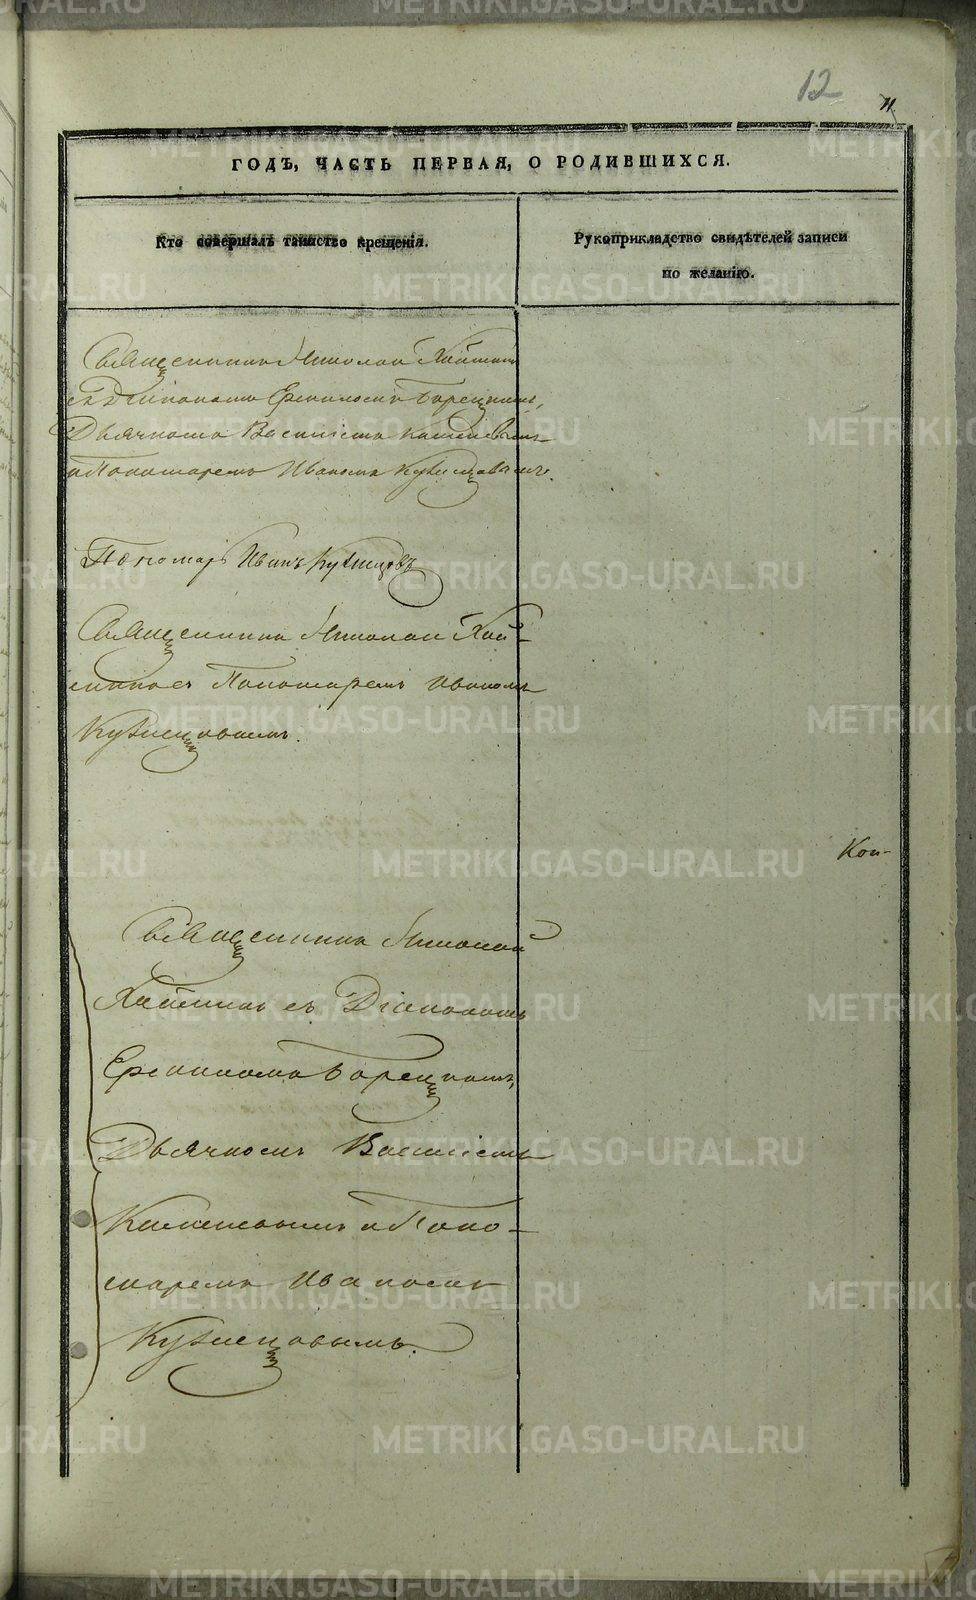 12
11
ГОДЪ, ЧАСТЬ ПЕРВАЯ, О РОДИВШИХСЯ.
Кто совершалъ таинство крещенія.
Рукоприкладство свидѣтелей записи
по желанію.
Священникъ Николай Хаймин
съ Діакономъ Борецкимъ,
Дьячкомъ Васиіемъ
и Пономаремъ Иваномъ Кузнецовымъ.
Пономарь Иванъ Кузнецовъ
Священникъ Николай Хай-
минъ съ Пономаремъ Иваномъ
Кузнецовымъ.
Коп-
Священникъ Николай
Хайминъ съ Діакономъ
Борецкимъ,
Дьячкомъ Васиіемъ
и Поно-
маремъ Иваномъ
Кузнецовымъ.
METRIKI.GASO-URAL.RU